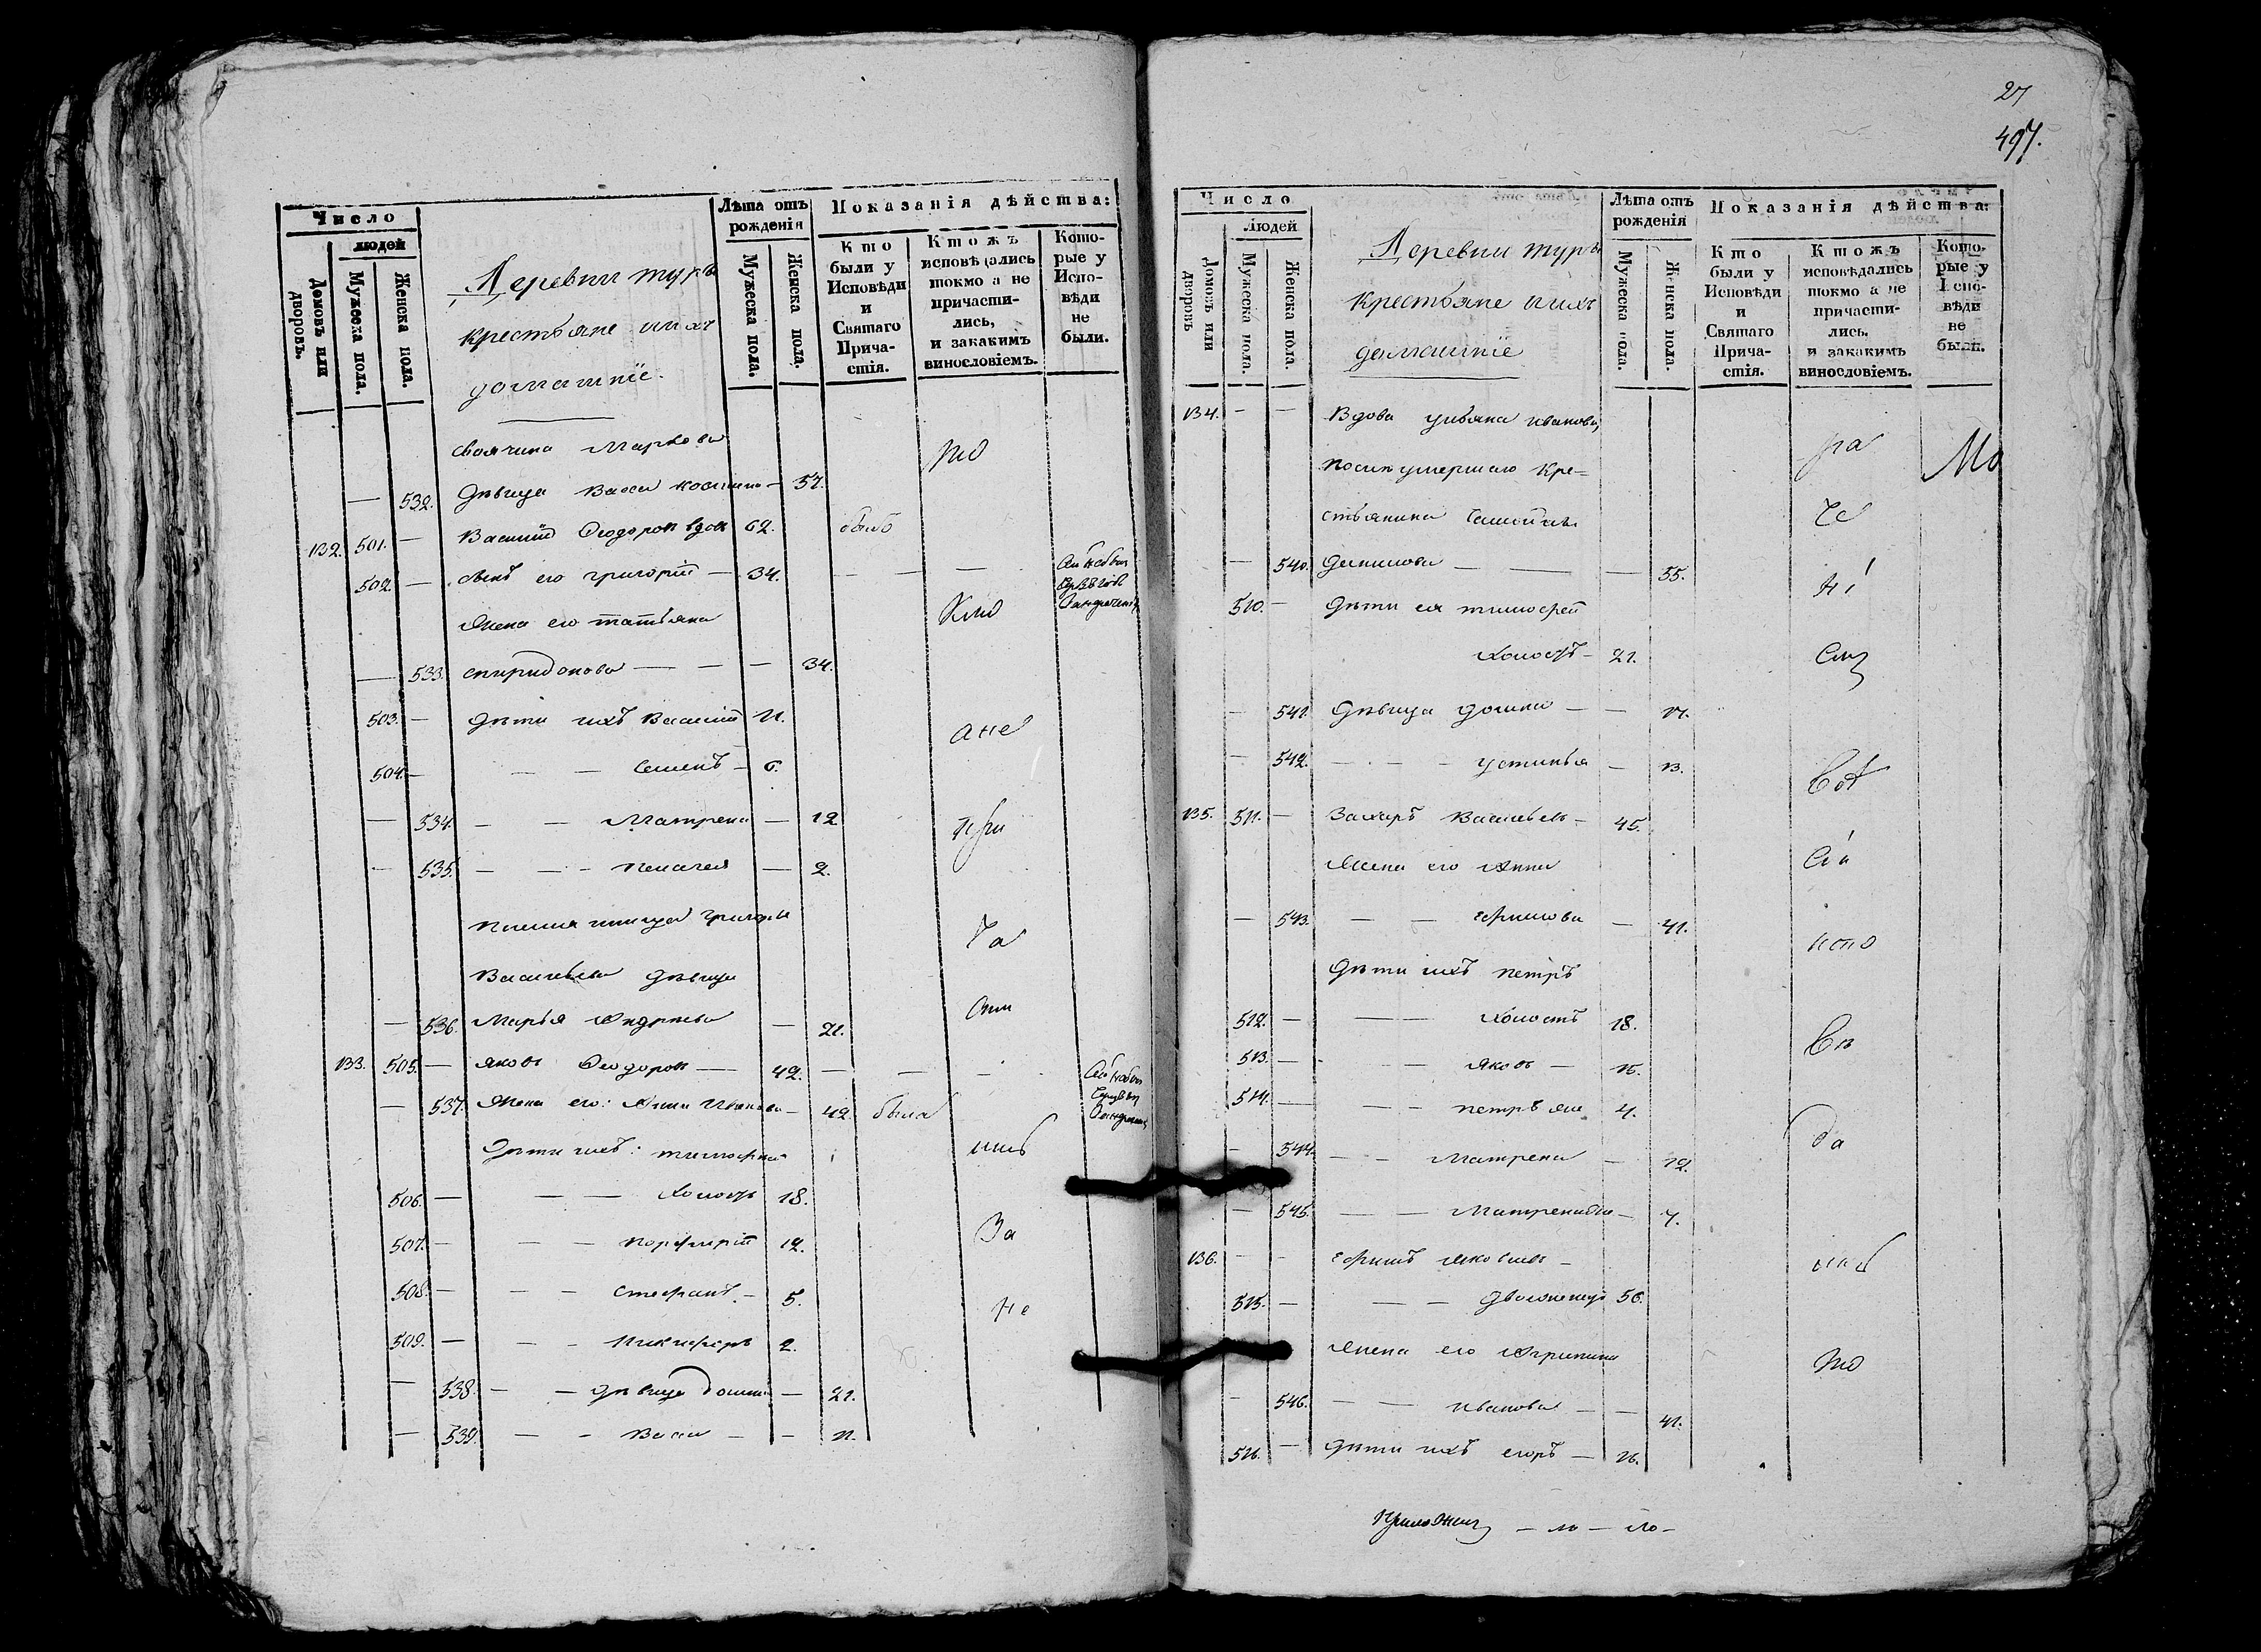 Число
людей
Домовъ или дворовъ.
Мужеска пола.
Женска пола.
Деревни туръ
крестьяне и ихъ
домашніе.
Лѣта отъ рожденія
Мужеска пола.
Женска пола.
Показанія дѣйства:
Кто были у Исповѣди и Святаго Прича-стія.
Ктожъ исповѣдались токмо а не причасти-лись, и закакимъ винословіемъ.
Кото-рые у Испо-вѣди не были.
своячина Маркова то
— 532. дѣвица Васса — 57.
132. 501. — Василій Ѳеодоровъ вдовъ 62. былъ
502. — сынъ его григорій — 34. — — —
Жена его татьяна
— 533. спиридонова — — — 34.
503. — дѣти ихъ Василій 11. а не
504. — — — Семенъ — 6.
— 534. — — Матрена — 12 при
— 535. — — — пелагея — 2.
племянница ча
Васильева дѣвица
— 536. Марья Андреева — 21. сти
133. 505. — яковъ Ѳеодоровъ — 42. — — —
— 537. Жена его: Анна Иванова — 42. была
Дѣти ихъ: тимофей лись
506. — — — холостъ 18.
507. — — — порфирій 12. За
508. — — — стефанъ — 5. не
509. — — — Никифоръ 2.
— 538. — — дѣвица домна — 21.
— 539. — — Васса — — 11.
27
497.
Число
людей
Домовъ или дворовъ
Мужеска пола.
Женска пола.
Деревни туръ
крестьяне и ихъ
домашніе
Лѣта отъ рожденія
Мужеска пола.
Женска пола.
Показанія дѣйства:
Кто были у Исповѣди и Святаго Прича-стія.
Ктожъ исповѣдались токмо а не причасти-лись, и закакимъ винословіемъ.
Кото-рые у Испо-вѣди не были.
134. — — Вдова ульяна иванова,
послѣ умершаго кре= ра Мо
стьянина че
— 540. данилова — — — 55. ні
510. — дѣти ея тимофей
холостъ — 21.
— 541. дѣвица домна — — 17.
— 542. — — — устинья — 13.
135. 511. — Захаръ Васильевъ — 45.
Жена его Анна
— 543. — — ефимова — 41. испо
дѣти ихъ петръ
512. — — — холостъ 18. вѣ
513. — — — яковъ — 15.
514. — — — петръ же 4. да
— 544. — — Матрена — 12.
— 545. — — Матрена же — 7.
136. — — ефимъ яковлевъ —
515. — — — двоеженецъ 56.
жена его Агрипина то
— 546. — — иванова — — 41.
516. — дѣти ихъ егоръ — 16.